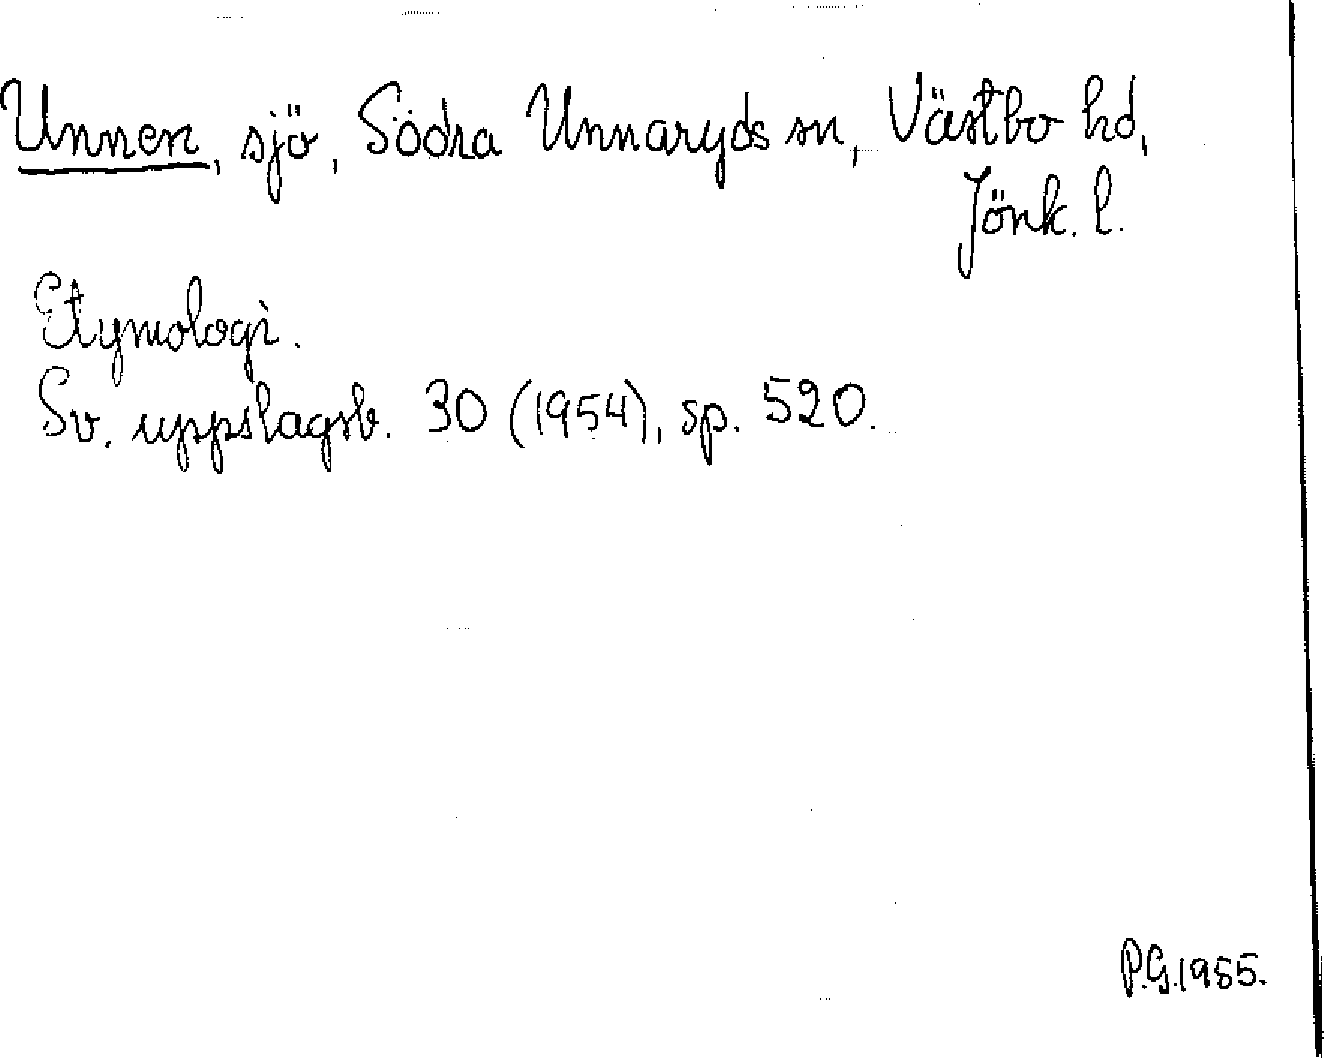 Unnen, sjö, Södra Unnaryds sn, Västbo hd,
Jönk. l.
Etymologi.
Sv. uppslagsb. 30 (1954), sp. 520.
P.G.1955.